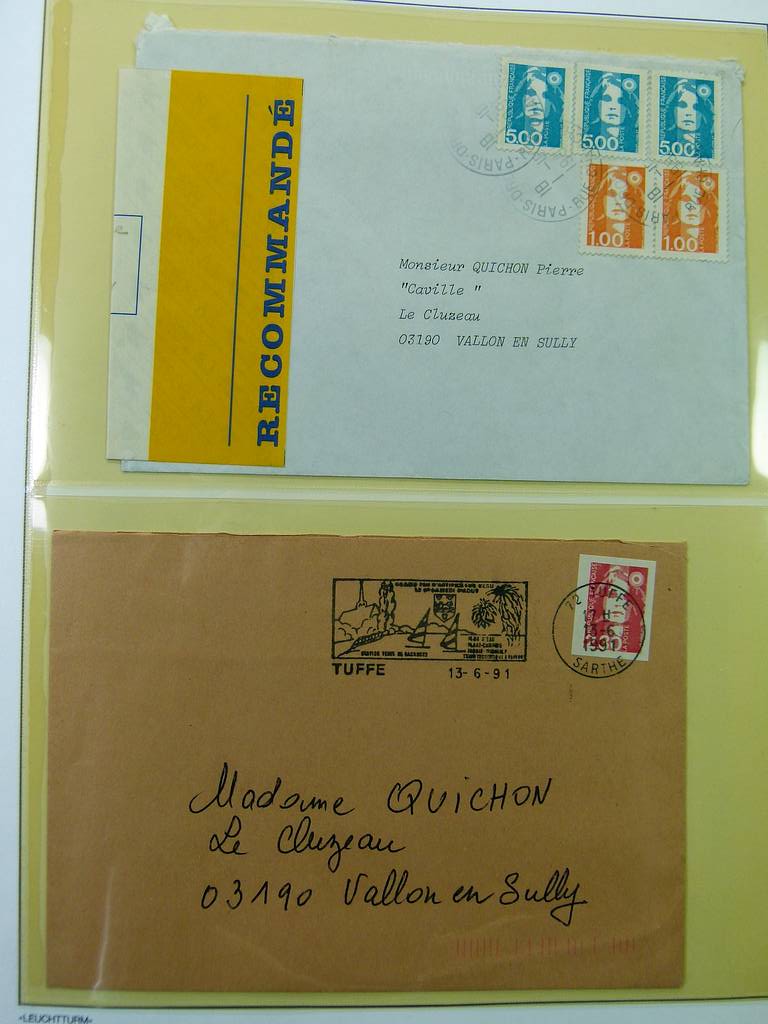 RECOMMANDÉ
REPUBLIQUE FRANÇAISE
5.00
LA POSTE
REPUBLIQUE FRANÇAISE
5.00
LA POSTE
REPUBLIQUE FRANÇAISE
5.00
LA POSTE
1.00
LA POSTE
1.00
LA POSTE
Monsieur QUICHON Pierre
"Caville "
Le Cluzeau
03190 VALLON EN SULLY
TUFFE 13-6-91
72 TUFFE
17 H
13-6
1991
SARTHE
LA POSTE
Madame QUICHON
Le Cluzeau
03190 Vallon en Sully
»LEUCHTTURM«